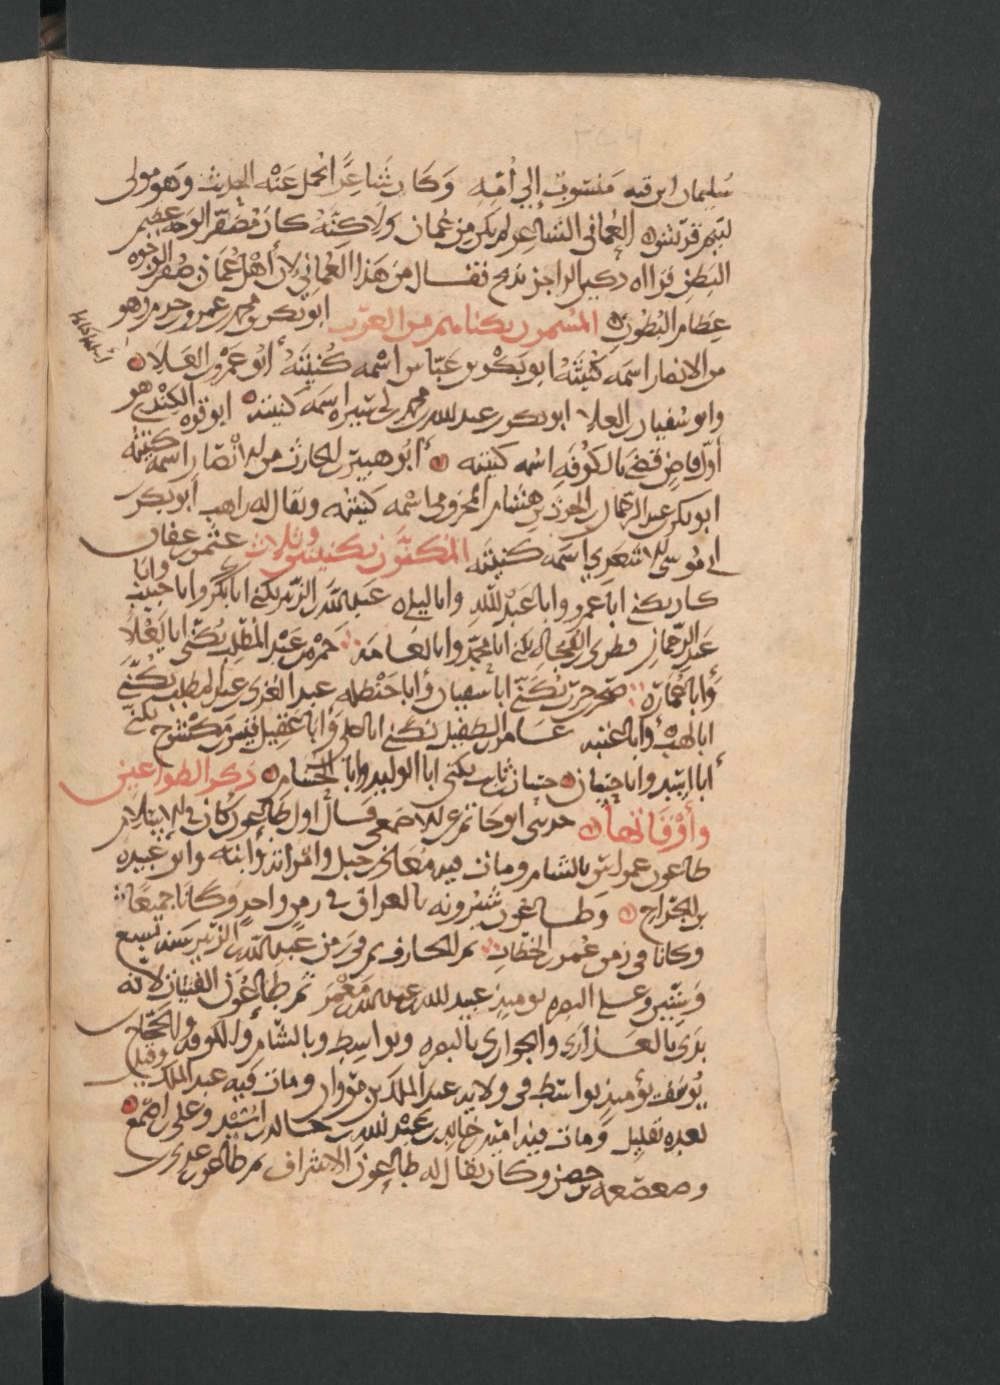 سُليمان ابن قته مَنسُوبٌ إلي أُمّهِ وَكَان شَاعِرًا يُحمل عَنْه الحديث وَهو مولى
لتيم قريش العُماني الشاعر لم يكن من عُمان وَلَكِنَّهُ كان مُصَفّر الوجه عظيم
البَطن فرآه دكين الراجز يمدح فقال من هَذا العُماني لأن أهْل عُمَان صُفر الوجوه
عِظام البُطون المسمون بكناهم من العرب ابو بكر بن محمد بن عمرو بن حزم وهو
من الانصار اسمه كُنيته ابو بَكْر بن عَيّاش اسْمه كُنيَتُهُ أبُو عَمْرو بن العَلاء
وابو سُفيان بن العلا ابو بكر بن عبد الله بن محمد بن ابي سبره اسمَه كنيته ابو قره الكِنْدي هو
أوّل قاضٍ قضَى بالكُوفَه اسْمه كنيته أبُو هبيره بن الحارث من الانصار اسمه كنيته
ابو بكر بن عبد الرحمان بن الحرث بن هشام المخزومي اسْمه كنيته ويقال له راهب ابو بكر
بن ابي مُوسَى الاشعَري اسمه كُنيَته المكنّون بكنيتين وثلاث عثمن بن عفان
كان يكنى ابا عمرو وابا عَبد اللهِ وابا ليلى عَبد الله بن الزبير يكنى ابا بكر وابا خبيب وابا
عَبد الرحمان قطري بن الفجاه يكنى ابا محمد وابا نَعامَة حمزه بن عَبْد المطلب يكنى ابا يَعلا
وَأبا عُمَارَه صخر بن حرب يُكنّى أبا سفيان وأبا حنظله عبد العُزى بن عبد المطلب يُكنّى
ابا لهب وابا عتبه عامر بن الطفيل يكنى ابا علي وَابا عَقيل قيس بن مكشوح يكنى
أبا اسَيد وابا حسان حسان بن ثابت يكنى ابا الوليد وابا الحُسام ذكر الطواعين
وأوْقَاتها حدثني ابو حاتم عن الاصمعي قَال اول طاعُون كان في الاسلام
طاعون عمواس بالشام ومات فيه مُعاذ بن جبل وامراته وابنه وابو عُبيده
بن الجرّاح وطاعُون شيرويه بالعراق في زمن واحدٍ وكانا جميعًا
وكانا في زمن عُمر بن الخطاب ثم الجارف في زمن عَبد الله بن الزبير سنة تسع
وَستين وعلى البصره يوميذ عبيد الله بن عبد الله بن مَعْمَر ثم طاعُون الفتيات لأنه
بَدى بالعَذارى والجوارى بالبصره وبواسط وبالشام والكوفه والحجاج
بن يُوسف يومئذٍ بواسط في ولاية عبد الملك بن مرْوان ومات فيه عبد الملك وقيل
بعده بقليل وَمات فيه اميه بن خالد بن عَبْد الله بن خالد بن اسَيْد وَعلى بن اصمع
وصعصعه بن حصن وكان يقال له طاعُون الاشراف ثم طاعون عدى بن